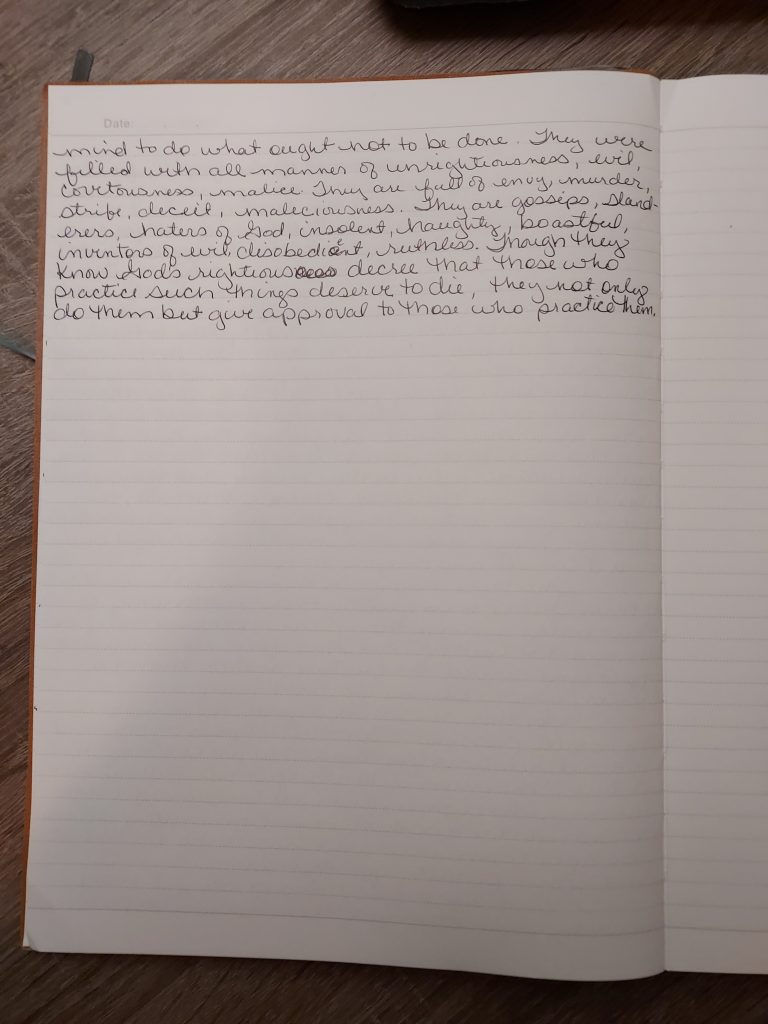 Date:
mind to do what ought not to be done. They were
filled with all manner of unrightiousness, evil,
covitousness, malice. They are full of envy, murder,
strife, deceit, maleciousness. They are gossips, sland-
erers, haters of God, insolent, haughty, boastful,
inventors of evil, disobedient, ruthless. Though they
know God's rightious decree that those who
practice such things deserve to die, they not only
do them but give approval to those who practice them.